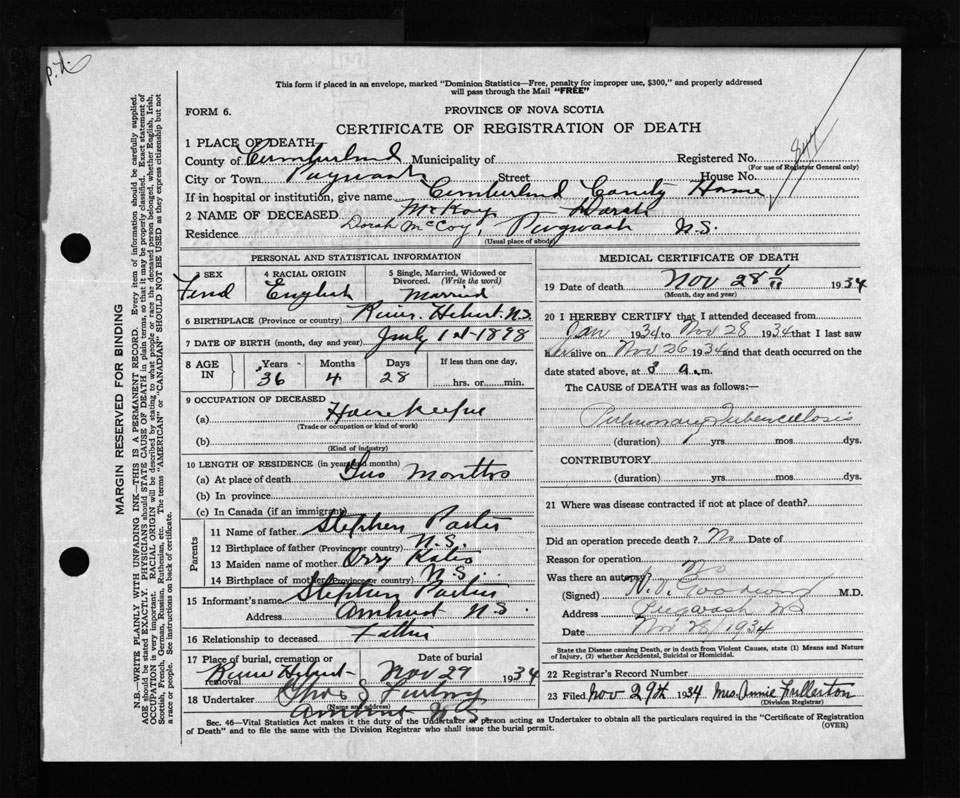 p.d.
This form if placed in an envelope, marked "Dominion Statistics—Free, penalty for improper use, $300," and properly addressed
will pass through the Mail "FREE"
FORM 6.
PROVINCE OF NOVA SCOTIA
CERTIFICATE OF REGISTRATION OF DEATH
1 PLACE OF DEATH
County of Cumberland Municipality of Registered No.
(For use of Registrar General only)
City or Town Pugwash Street House No.
If in hospital or institution, give name Cumberland County Home
2 NAME OF DECEASED McKay Dorah
Dorah McCoy
Residence Pugwash N.S.
(Usual place of abode)
PERSONAL AND STATISTICAL INFORMATION
3 SEX 4 RACIAL ORIGIN 5 Single, Married, Widowed or Divorced. (Write the word)
English Married
6 BIRTHPLACE (Province or country) River Hebert N.S.
7 DATE OF BIRTH (month, day and year) July 1st 1898
8 AGE IN Years Months Days If less than one day,
36 4 28 hrs. or min.
9 OCCUPATION OF DECEASED
(a) Housekeeper
(Trade or occupation or kind of work)
(b)
(Kind of industry)
10 LENGTH OF RESIDENCE (in years and months)
(a) At place of death Two Months
(b) In province
(c) In Canada (if an immigrant)
Parents
11 Name of father Stephen
12 Birthplace of father (Province or country) N.S.
13 Maiden name of mother
14 Birthplace of mother (Province or country) N.S.
15 Informant's name Stephen
Address Amherst N.S.
16 Relationship to deceased Father
17 Place of burial, cremation or removal Date of burial
River Hebert Nov 29 1934
18 Undertaker
(Name and address)
Amherst N.S.
MEDICAL CERTIFICATE OF DEATH
19 Date of death Nov 28th 1934
(Month, day and year)
20 I HEREBY CERTIFY that I attended deceased from
Jan 1934 to Nov 28 1934 that I last saw
her alive on Nov 26 1934 and that death occurred on the
date stated above, at 8 a. m.
The CAUSE OF DEATH was as follows:
Pulmonary Tuberculosis
(duration) yrs. mos. dys.
CONTRIBUTORY
(duration) yrs. mos. dys.
21 Where was disease contracted if not at place of death?
Did an operation precede death? No Date of
Reason for operation
Was there an autopsy? No
(Signed) M.D.
Address Pugwash NS
Date Nov 28/1934
State the Disease causing Death, or in death from Violent Causes, state (1) Means and Nature of Injury, (2) whether Accidental, Suicidal or Homicidal.
22 Registrar's Record Number
23 Filed Nov 29th 1934 Mrs. Annie Fullerton
(Division Registrar)
Sec. 46—Vital Statistics Act makes it the duty of the Undertaker or person acting as Undertaker to obtain all the particulars required in the "Certificate of Registration
of Death" and to file the same with the Division Registrar who shall issue the burial permit.
(OVER)
MARGIN RESERVED FOR BINDING
N.B.—WRITE PLAINLY WITH UNFADING INK—THIS IS A PERMANENT RECORD. Every item of information should be carefully supplied.
AGE should be stated EXACTLY. PHYSICIANS should STATE CAUSE OF DEATH in plain terms, so that it may be properly classified. Exact statement of
OCCUPATION is very important. RACIAL ORIGIN will be described by stating to what people or race the deceased person belonged, whether English, Irish,
Scottish, French, German, Russian, Ruthenian, etc. The terms "AMERICAN" or "CANADIAN" SHOULD NOT BE USED as they express citizenship but not
a race or people. See instructions on back of certificate.